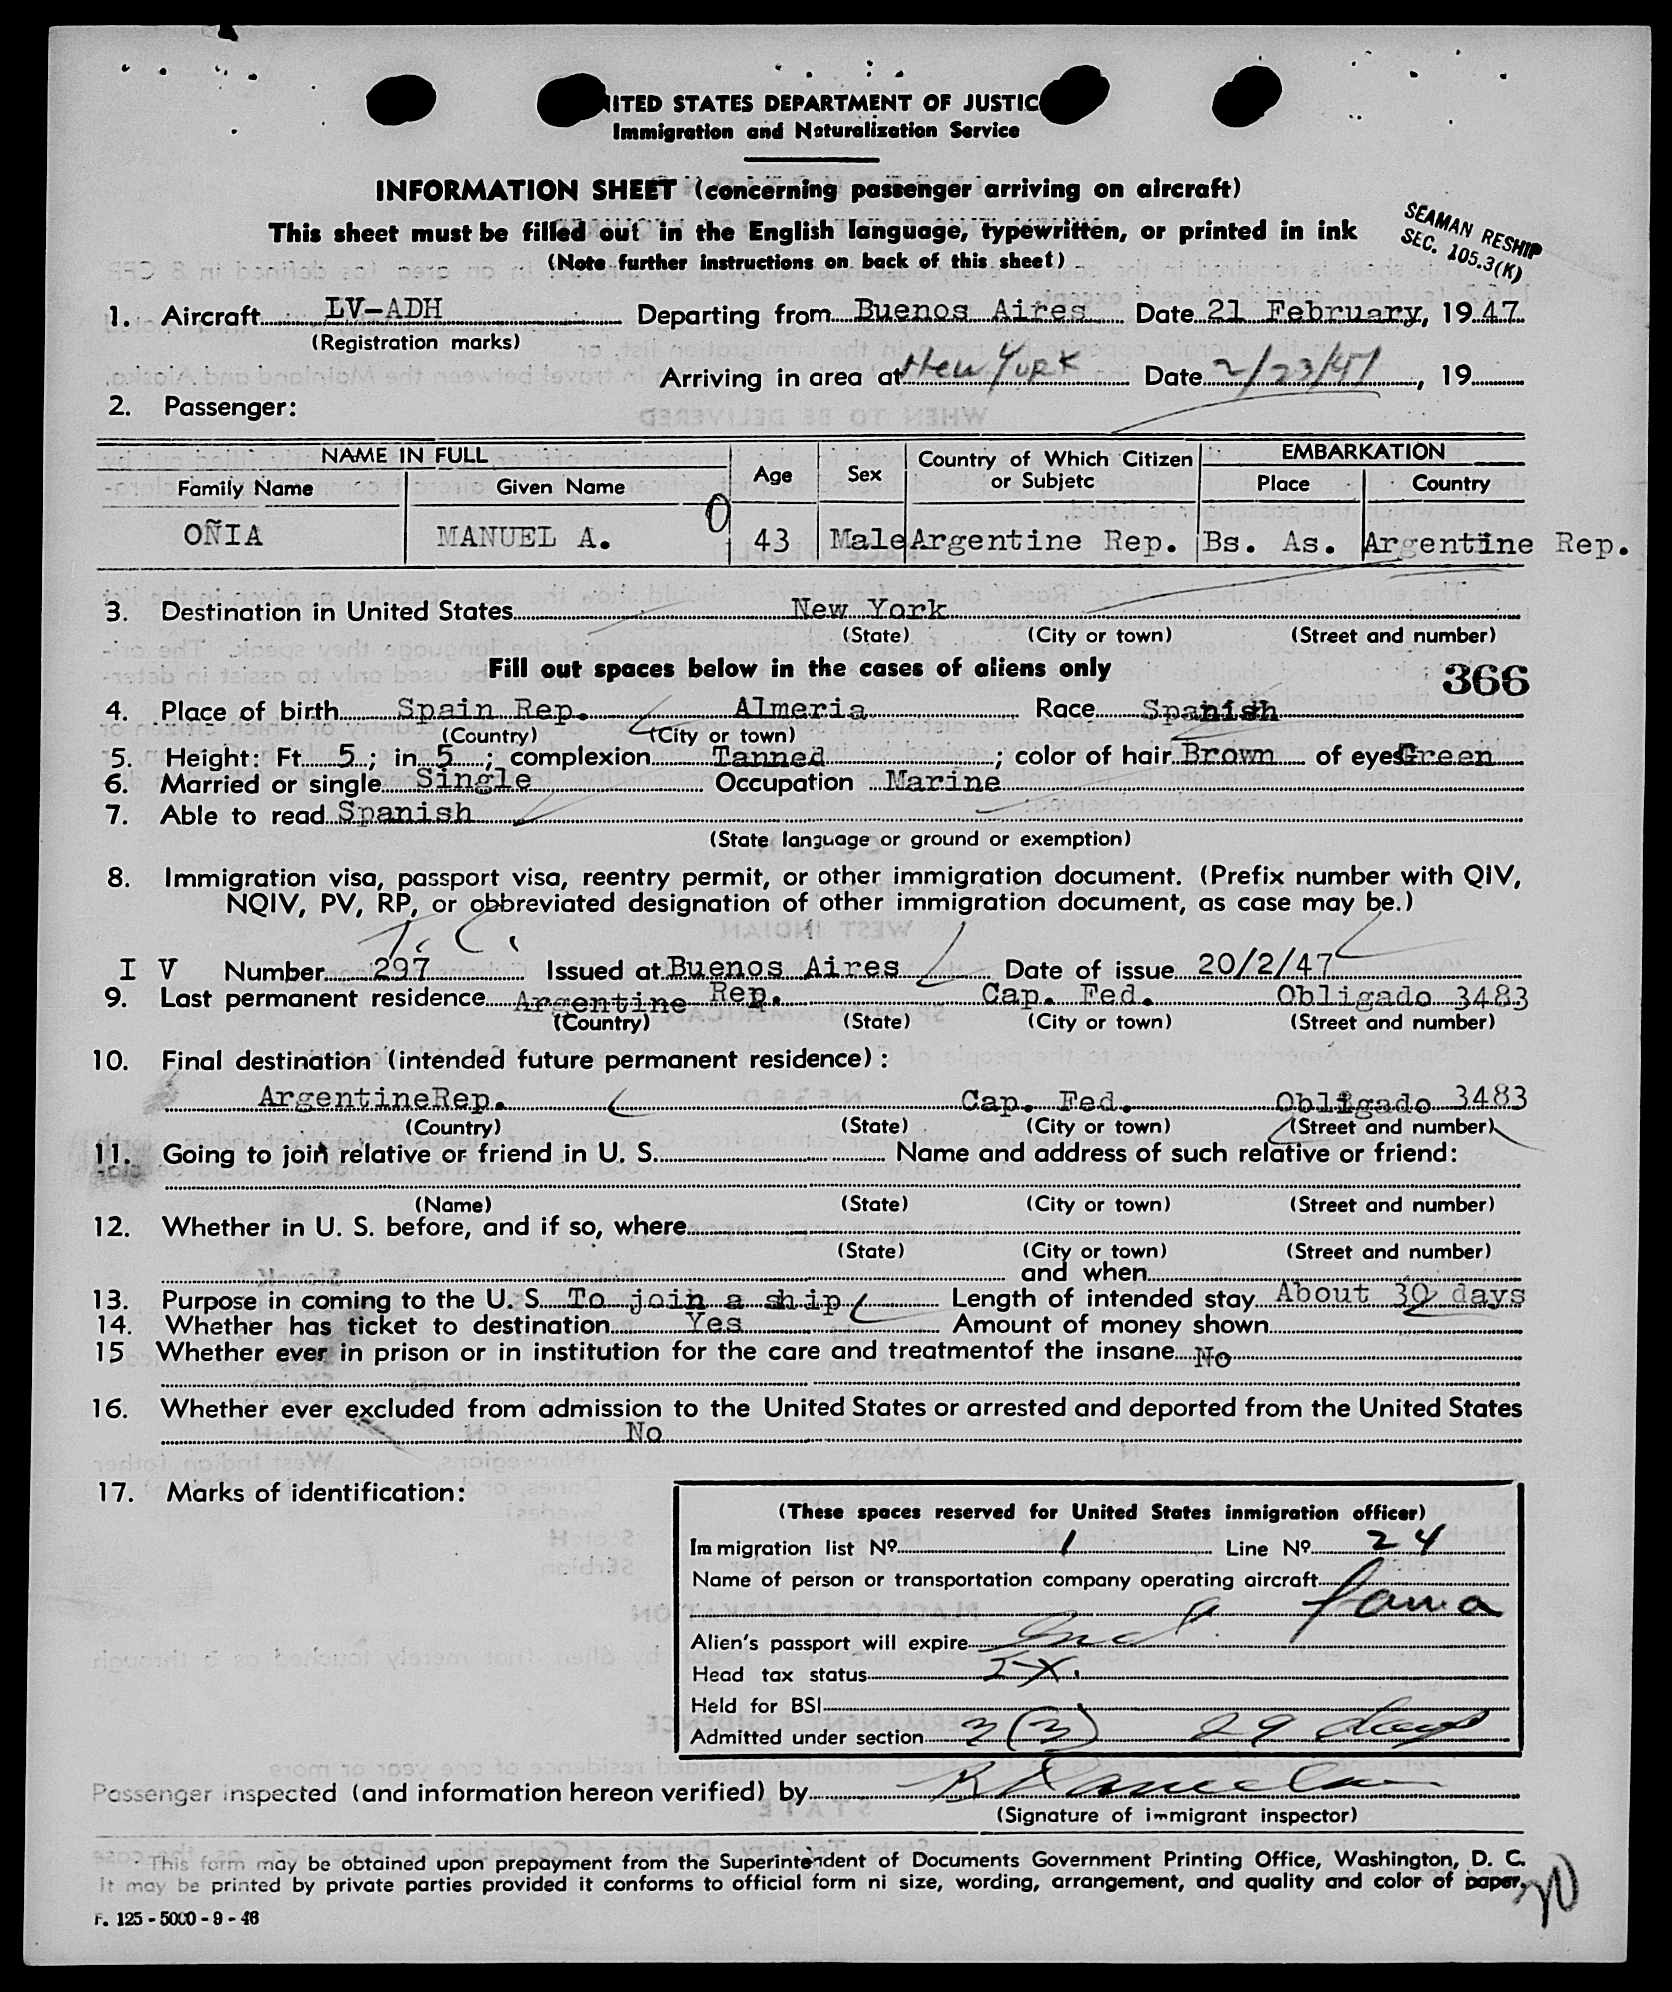 UNITED STATES DEPARTMENT OF JUSTICE
Immigration and Naturalization Service
INFORMATION SHEET (concerning passenger arriving on aircraft)
This sheet must be filled out in the English language, typewritten, or printed in ink
(Note further instructions on back of this sheet)
SEAMAN RESHIP
SEC. 105.3(K)
1. Aircraft LV-ADH Departing from Buenos Aires Date 21 February, 1947
(Registration marks)
Arriving in area at New York Date 2/23/47, 19
2. Passenger:
NAME IN FULL Age Sex Country of Which Citizen or Subjetc EMBARKATION
Family Name Given Name Place Country
OÑIA MANUEL A. 43 Male Argentine Rep. Bs. As. Argentine Rep.
3. Destination in United States New York
(State) (City or town) (Street and number)
Fill out spaces below in the cases of aliens only
366
4. Place of birth Spain Rep. Almeria Race Spanish
(Country) (City or town)
5. Height: Ft. 5; in. 5; complexion Tanned; color of hair Brown of eyes Green
6. Married or single Single Occupation Marine
7. Able to read Spanish
(State language or ground or exemption)
8. Immigration visa, passport visa, reentry permit, or other immigration document. (Prefix number with QIV,
NQIV, PV, RP, or obbreviated designation of other immigration document, as case may be.)
I V Number 297 Issued at Buenos Aires Date of issue 20/2/47
9. Last permanent residence Argentine Rep. Cap. Fed. Obligado 3483
(Country) (State) (City or town) (Street and number)
10. Final destination (intended future permanent residence):
ArgentineRep. Cap. Fed. Obligado 3483
(Country) (State) (City or town) (Street and number)
11. Going to join relative or friend in U. S. Name and address of such relative or friend:
(Name) (State) (City or town) (Street and number)
12. Whether in U. S. before, and if so, where
(State) (City or town) (Street and number)
and when
13. Purpose in coming to the U. S. To join a ship Length of intended stay About 30 days
14. Whether has ticket to destination Yes Amount of money shown
15 Whether ever in prison or in institution for the care and treatmentof the insane No
16. Whether ever excluded from admission to the United States or arrested and deported from the United States
No
17. Marks of identification:
(These spaces reserved for United States inmigration officer)
Immigration list Nº 1 Line Nº 24
Name of person or transportation company operating aircraft
fama
Alien's passport will expire
Head tax status
Held for BSI
Admitted under section 3(3) 29 days
Passenger inspected (and information hereon verified) by
(Signature of immigrant inspector)
This form may be obtained upon prepayment from the Superintendent of Documents Government Printing Office, Washington, D. C.
It may be printed by private parties provided it conforms to official form ni size, wording, arrangement, and quality and color of paper.
F. 125 - 5000 - 9 - 46